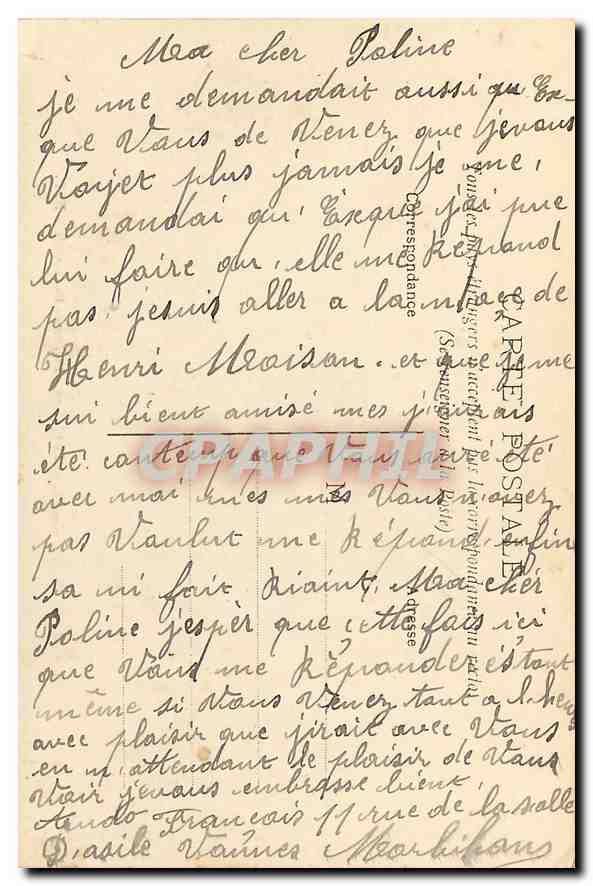 Ma cher Poline
je me demandait aussi qu Ex-
que Vous de Venez que je vous
Voyet plus jamais je me,
demandai qu' Exque j'ai pue
lui faire qu, elle me Répond
pas, je suis aller a la noce de
Henri Moison. et que je me
sui bient amisé mes j'aurais
été contemp que Vous aure été
avec moi mes mes Vous n'avez
pas Voulut me Répond enfin
sa ni fait Riaint, Ma chér
Poline j'espèr que cette fois ici
que Vous me Réponderés tout
même si Vous Venez tant a l, heure
avec plaisir que j'irait avec Vous
en m, attendant le plaisir de Vous
Voir je vous embrasse bient,
François 11 rue de la salle
D'asile Vannes Morbihans
CARTE POSTALE
Tous les pays étrangers n'acceptent pas la correspondance au recto
(Se renseigner à la Poste)
Correspondance
Adresse
M
CPAPHIL